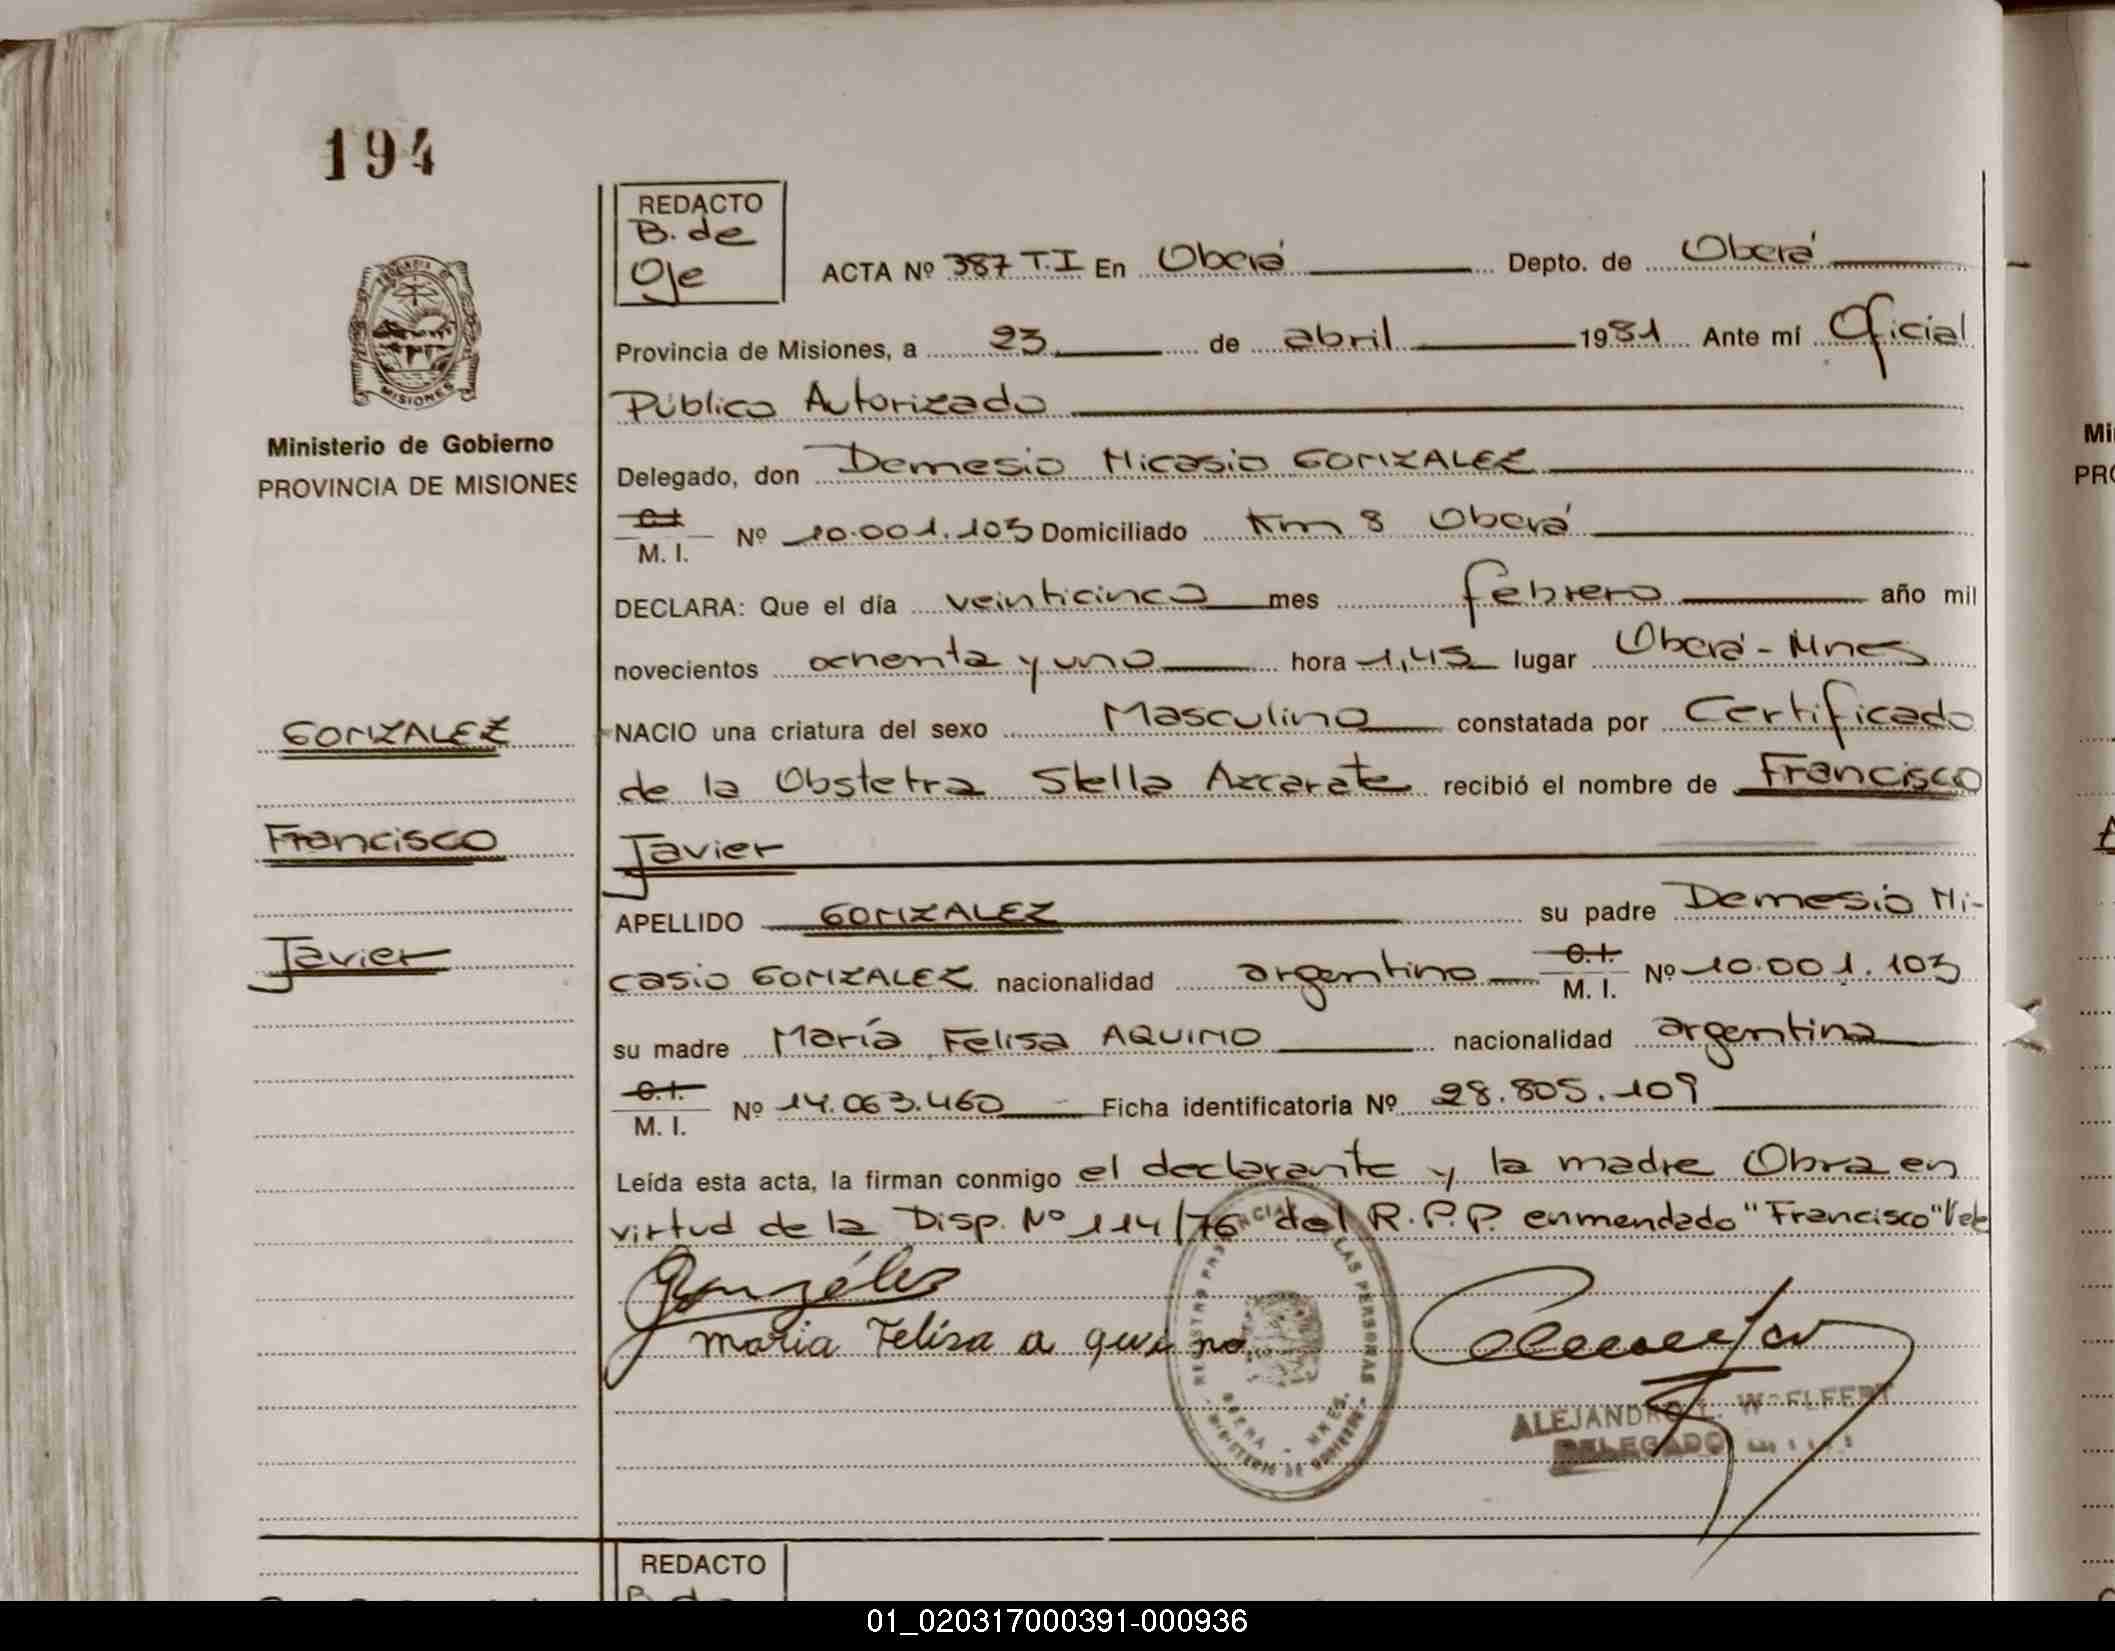 194
REDACTO
B. de
Oje
ACTA Nº 387 T.I En Oberá Depto. de Oberá
Provincia de Misiones, a 23 de abril 1981 Ante mí Oficial
Público Autorizado
Ministerio de Gobierno
PROVINCIA DE MISIONES
Delegado, don Demesio Nicasio GONZALEZ
C.I. M. I. Nº 10.001.103 Domiciliado Km 8 Oberá
DECLARA: Que el día veinticinco mes febrero año mil
novecientos ochenta y uno hora 1,45 lugar Oberá - Mnes
GONZALEZ
NACIO una criatura del sexo Masculino constatada por Certificado
de la Obstetra Stella Azcarate recibió el nombre de Francisco
Francisco
Javier
APELLIDO GONZALEZ su padre Demesio Ni-
Javier
casio GONZALEZ nacionalidad argentino C.I. M. I. Nº 10.001.103
su madre María Felisa AQUINO nacionalidad argentina
C.I. M. I. Nº 14.063.460 Ficha identificatoria Nº 28.805.109
Leída esta acta, la firman conmigo el declarante y la madre Obra en
virtud de la Disp. Nº 114/76 del R.P.P. enmendado "Francisco" Vale
González
maria Felisa a qui no
REGISTRO PROVINCIAL DE LAS PERSONAS
OBERA - MNES.
MINISTERIO DE GOBIERNO
ALEJANDRO L. WOELFERT
DELEGADO
REDACTO
B. de
01_020317000391-000936